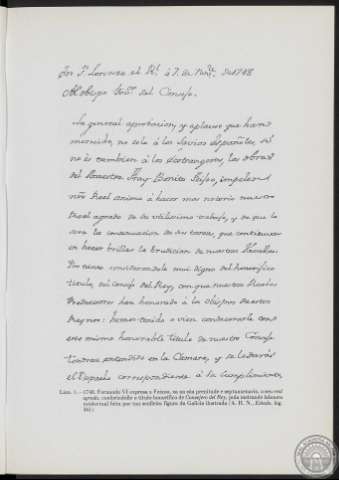 Sn Lorenzo el Rl. á 7. de Novre. de 1748
Al obispo Gor. del Consejo.
La general aprobacion, y aplauso que han
merecido, no solo á los Savios Españoles, sí
no es tambien á los Extrangeros, las obras
del Maestro Fray Benito Feijoo, impelen
mi Real animo á hacer mas notorio nuestro
Real agrado de su utilissimo trabajo, y de que
sea la continuacion de sus tareas, que contribuyen
en hacer brillar la erudicion de nuestros Vasallos.
Por tanto considerandole mui digno del honorifico
titulo, del consejo del Rey, con que nuestros Reales
Predecesores han honrado á los obispos de estos
Reynos: hemos tenido á vien condecorarle con
este mismo honorable titulo de nuestro Consejo
Tendrase entendido en la Camara, y se le dará
el Despacho correspondiente á su cumplimiento
Lám. 1.—1748. Fernando VI expresa a Feixoo, en su sia plenitude e septuaxenario, o seu real
agrado, confiríndolle o título honorífico de Consejero del Rey, pola meritoria labor
intelectual feita por tan senlleira figura da Galicia ilustrada (A. H. N., Estado, leg.